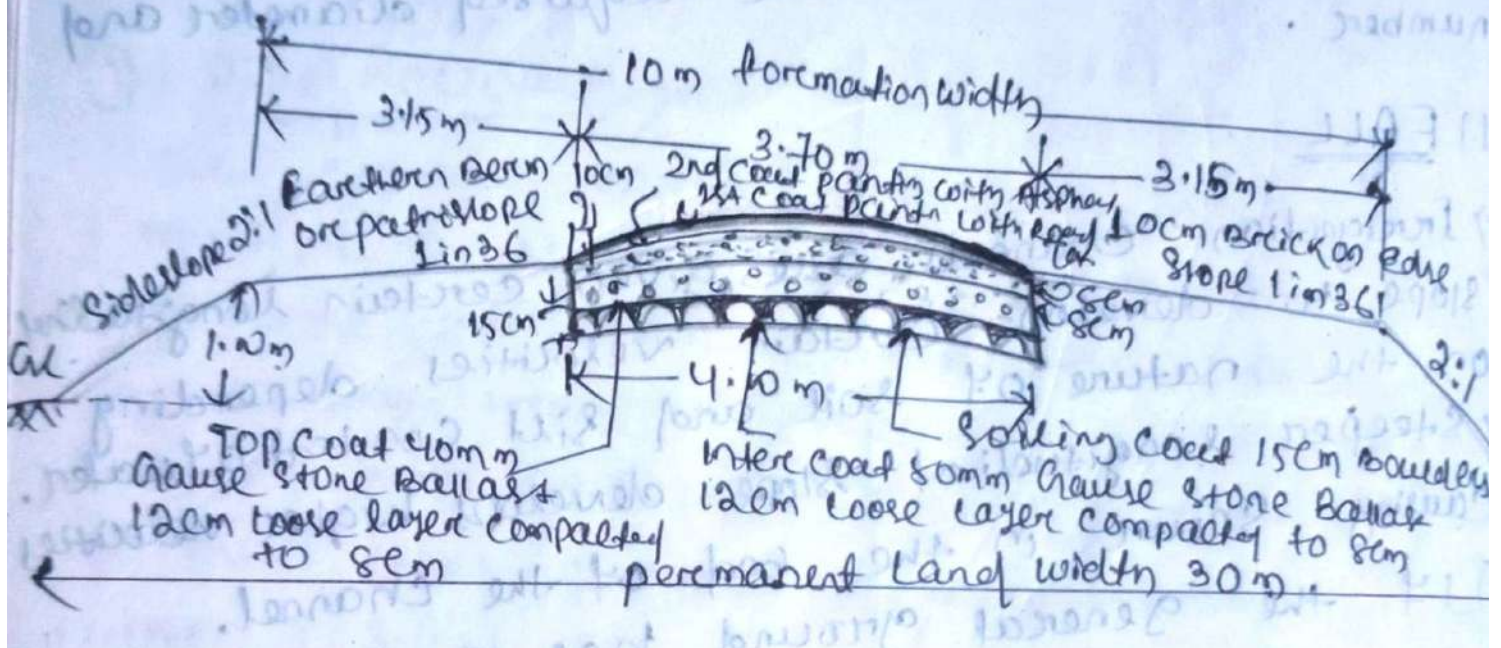 10 m formation width
3.15 m
3.70 m
3.15 m
Earthern Berm
or patri slope
1 in 36
10cm
2nd coat painting with Asphalt
1st coat painting with Road
tar
10cm Brick on Edge
Slope 1 in 36
Side slope 2:1
2:1
GL
1.00m
15cm
8cm
8cm
4.10 m
Top Coat 40mm
Gause Stone Ballast
12cm loose layer compacted
to 8cm
Inter coat 50mm Gause Stone Ballast
12cm loose layer compacted to 8cm
Soiling Coat 15cm Boulders
peremanent Land width 30 m.